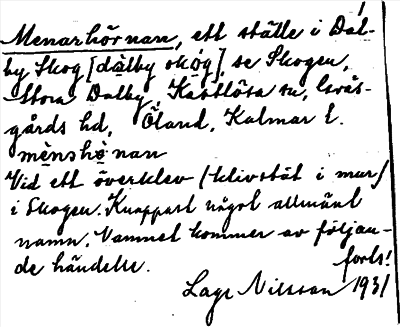 Menarhörnan, ett ställe i Dal-
by Skog [dàlby skóg], se Skogen,
Stora Dalby, Kastlösa sn, Grås-
gårds hd, Öland, Kalmar l.
mènshö̀nan
Vid ett överklev (klivstät i mur)
i Skogen. Knappast något allmänt
namn. Namnet kommer av följan-
de händelse. forts!
Lage Nilsson 1931